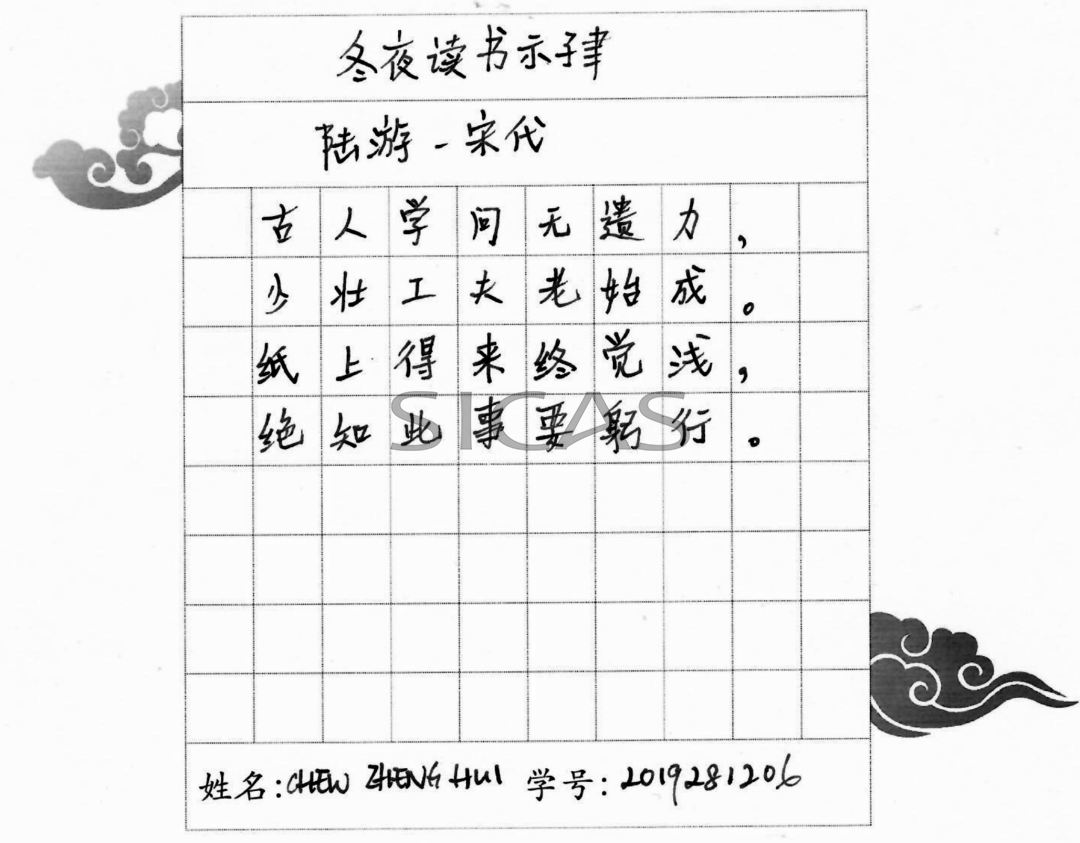 冬夜读书示子聿
陆游-宋代
古人学问无遗力，
少壮工夫老始成。
纸上得来终觉浅，
绝知此事要躬行。
SICAS
姓名:CHEW ZHENG HUI 学号:2019281206